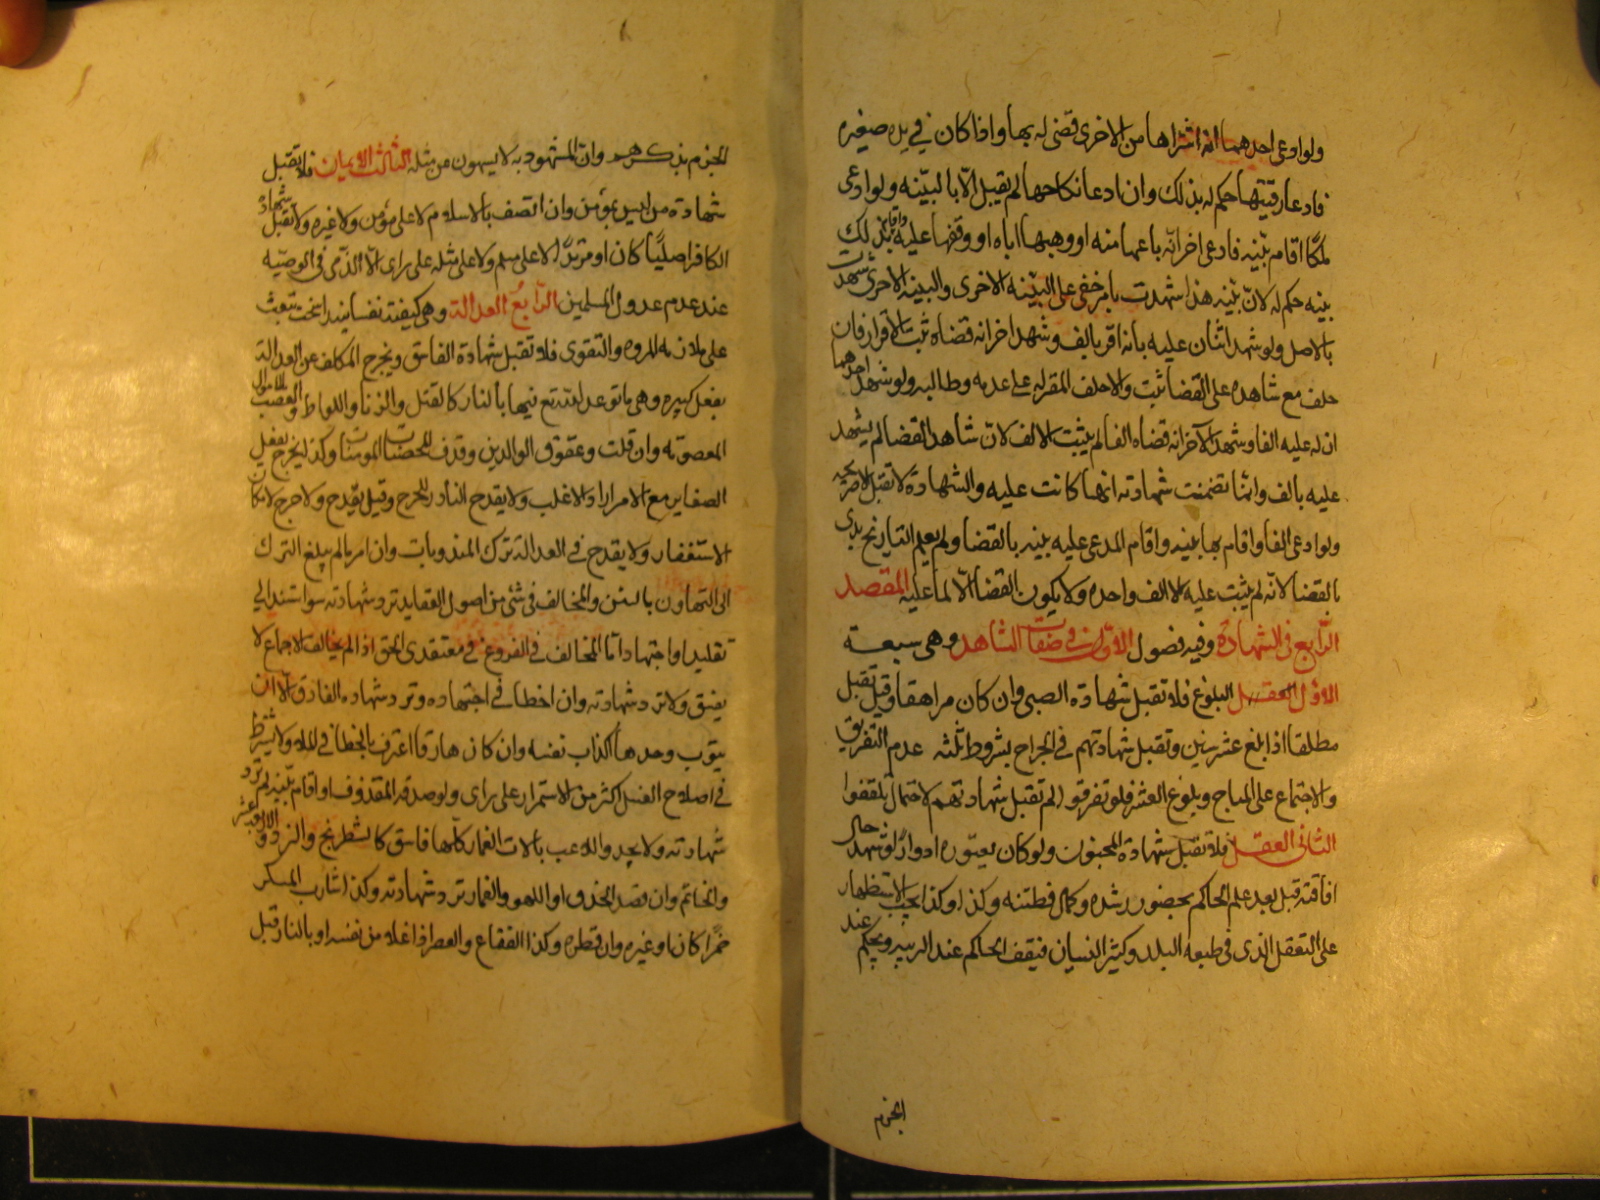 ولو ادعى احدهما انه اشتراها من الاخرى قضى له بها واذا كان في يده صغيره
فادعا رقيتها حكم له بذلك وان ادعا نكاحها لم يقبل الا بالبينه ولو ادعى
ملكا اقام بينه فادعى اخر انه باعها منه او وهبها اياه او وقفها عليه واقام بذلك
بينه حكم له لان بينه هذا شهدت بامر خفي على البينه الاخرى والبينه الاخرى شهدت
بالاصل ولو شهد اثنان عليه بانه اقر بالف وشهد اخر انه قضاه ثبت الاقرار فان
حلف مع شاهده على القضا ثبت والا حلف المقر له على عدمه وطالبه ولو شهد احدهما
ان له عليه الفا وشهد الآخر انه قضاه الفا لم يثبت الالف لان شاهد القضا لم يشهد
عليه بالف وانما تضمنت شهادته انها كانت عليه والشهادة لا تقبل الا صريحه
ولو ادعى الفا واقام بها بينه واقام المدعى عليه بينه بالقضا ولم يعلم التاريخ برى
بالقضا لانه لم يثبت عليه الا الف واحده ولا يكون القضا الا لما عليه المقصد
الرابع في الشهادة وفيه فصول الاول في صفات الشاهد وهي سبعة
الاول العقل البلوغ فلا تقبل شهادة الصبي وان كان مراهقا وقيل تقبل
مطلقا اذا بلغ عشر سنين وتقبل شهادتهم في الجراح بشروط ثلثه عدم التفريق
والاجتماع على المباح وبلوغ العشر فلو تفرقوا لم تقبل شهادتهم لاحتمال تلقفوا
الثاني العقل فلا تقبل شهادة المجنون ولو كان يعتوره ادوارا لو شهد حال
افاقته قبل بعد علم الحاكم بحضور رشده وكمال فطنته وكذا وكذا يجب الاستظهار
على التغفل الذي في طبعه البله وكثير النسيان فيقف الحاكم عند الريبه ويحكم عند
الجزم
الجزم بذكرهم وان المشهود به لا يسهون عن مثله الثالث الايمان فلا تقبل
شهادة من ليس بمؤمن وان اتصف بالاسلام لا على مؤمن ولا غيره ولا تقبل شهادة
الكافر اصليا كان او مرتدا لا على مسلم ولا على مثله على راى الا الذمى في الوصيه
عند عدم عدول المسلمين الرابع العدالة وهي كيفية نفسانيه راسخة تبعث
على ملازمه المروه والتقوى فلا تقبل شهادة الفاسق ويخرج المكلف عن العدالة
بفعل كبيره وهي ما توعد الله تع فيها بالنار كالقتل والزنا واللواط والغصب للاموال
المعصومه وان قلت وعقوق الوالدين وقذف المحصنات المومنات وكذا يخرج بفعل
الصغاير مع الاصرار او الاغلب ولا يقدح النادر للحرج وقيل يقدح ولا حرج لامكان
الاستغفار ولا يقدح في العدالة ترك المندوبات وان اصر ما لم يبلغ الترك
الى التهاون بالسنن والمخالف في شئ من اصول العقايد ترد شهادته سوا استند الى
تقليد او اجتهاد اما المخالف في الفروع في معتقدى الحق اذا لم يخالف الاجماع لا
يفسق ولا ترد شهادته وان اخطا في اجتهاده وترد شهاده القاذف الا ان
يتوب وحدها اكذاب نفسه وان كان صادقا اعترف بالخطا في الملا ولا يشترط
في اصلاح العمل اكثر من الاستمرار على راى ولو صدقه المقذوف او اقام بينه لم ترد
شهادته ولا يحد واللاعب بالات القمار كلها فاسق كالشطرنج والنرد والاربعه عشر
والخاتم وان قصد الحذق او اللهو والقمار ترد شهادته وكذا شارب المسكر
خمرا كان او غيره وان قطره وكذا الفقاع والعصير اذا غلا من نفسه او بالنار قبل